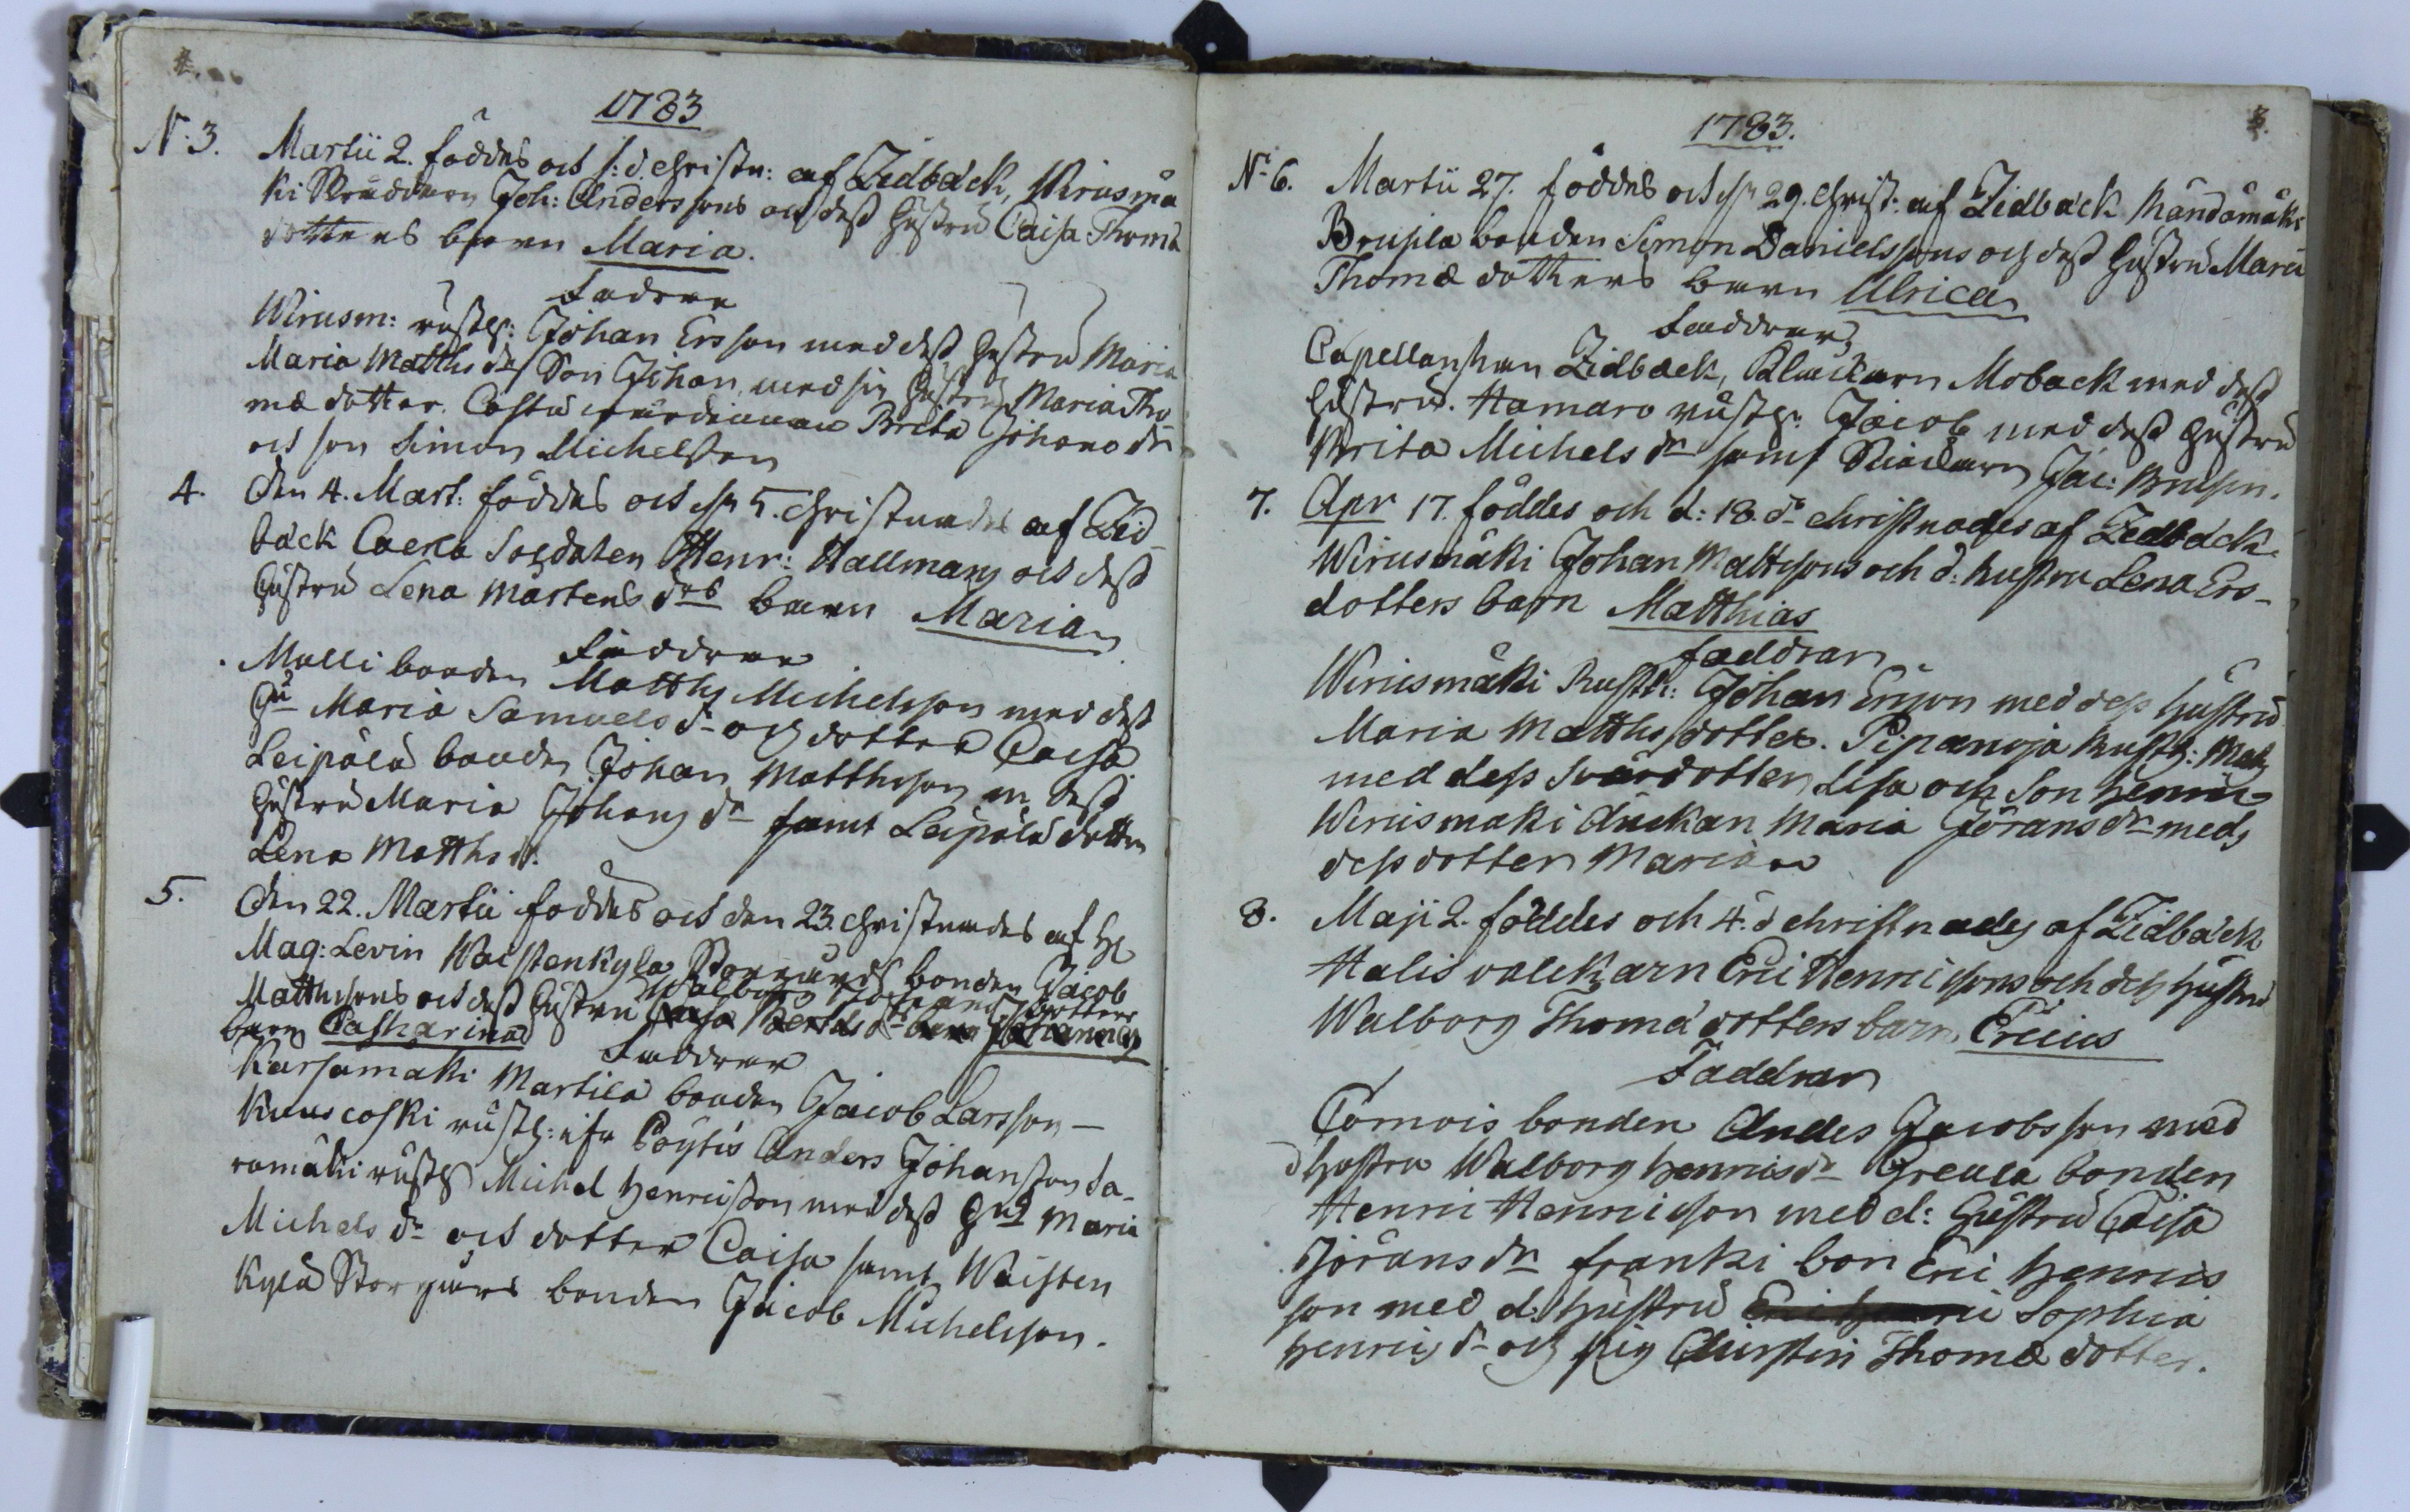 1783
N:3. Martii 2. föddes och s: d. Christn: af Zidbäck, Wirusmä
ki Skräddarn Joh: Anderssons och dess hustru Caisa Thomæ
dotters barn Maria.
Faddrar
Wirusm: rusth: Johan Ersson med dess hustru Maria
Maria Matths dr Son Johan, med sin hustru Maria Tho
mæ dotter. Brita Johans dr
och son Simon Michelsson
4. Den 4. Mart: föddes och 5. Christnades af Zid
bäck Caerla Soldaten Henr: Hallmans och dess
hustru Lena Mårtens drs barn Maria
Faddrar
Mulli bonden Matths Michelsson med dess
hu Maria Samuels dr och dotter Caisa
Leipälä bonden Johan Matthsson m dess
hustru Maria Johans dr samt Leipälä dotter
Lena Matths dr.
5. Den 22. Martii föddes och den 23. Christnades af H
Mag: Levin Waistenkylä Storgårds bonden Jacob
Matthssons och dess hustru Walborg dotters
barn Catharina
Faddrar
Karsamäki Martila bonden Jacob Larsson –
Kuuscoski rusth: ifr Pöytis Anders Johansson Sa-
ramäki rusth Michel Henricsson med dess hu Maria
Michels dr och dotter Caisa samt Waisten
Kylä Storgårds bonden Jacob Michelsson.
1783.
3.
N:6. Martii 27. föddes och 29. Christ: af Zidbäck Kändämäki
Brusila bonden Simon Danielssons och dess hustru Maria
Thomæ dotters barn Ulrica
Faddrar
Capellanskan Zidbäck, Klåckarn Moback med dess
hustru. Hamaro rusth: Jacob med dess hustru
Brita Michels dr samt Jac: Brusin.
7. Apr 17. föddes och d: 18. do christnades af Zedbäck
Wirusmäki Johan Mattssons och d: hustru Lena Ers-
dotters barn Matthias
faddrar
Wirusmäki Rusth: Johan Ersson med dess hustru
Maria Matths dotter. Pipanoja Rusth: Mats
med dess svärdotter Lisa och Son Henric
Wirusmäki änckan Maria Jörans dr med
dess dotter Maria
8. Maji 2. föddes och 4. d christnades af Zidbäck
Halis valckarn Eric Henricssons och dess hustru
Walborg Thomæ dotters barn Ericus
Faddrar
Tomois bonden Andes Jacobsson med
d hustru Walborg Henrics dr Greula bonden
Henric Henricsson med d: hustru Caisa
Jörans dr franki bon Eric Henrics
son med d: hustru Sophia
Henrics dr och pig Christin Thomæ dotter.